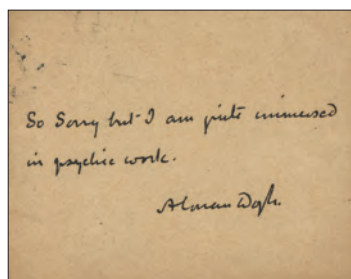 So Sorry but I am quite immersed
in psychic work.
A Conan Doyle